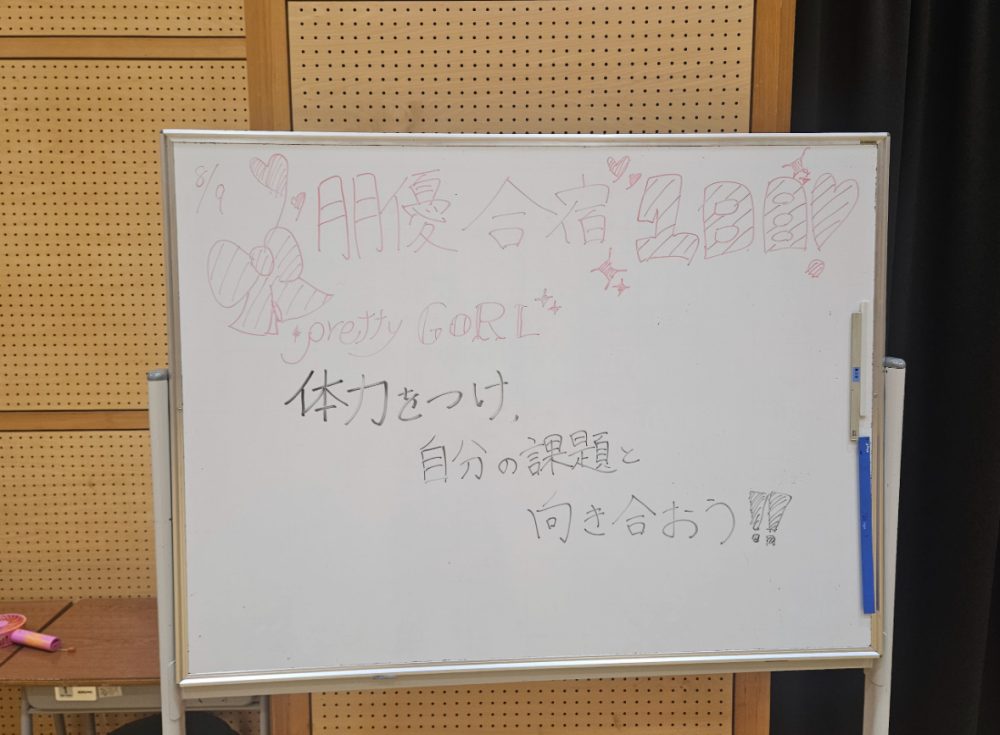 8/9
朋優合宿1日目!
pretty GORL
体力をつけ、
自分の課題と
向き合おう!!